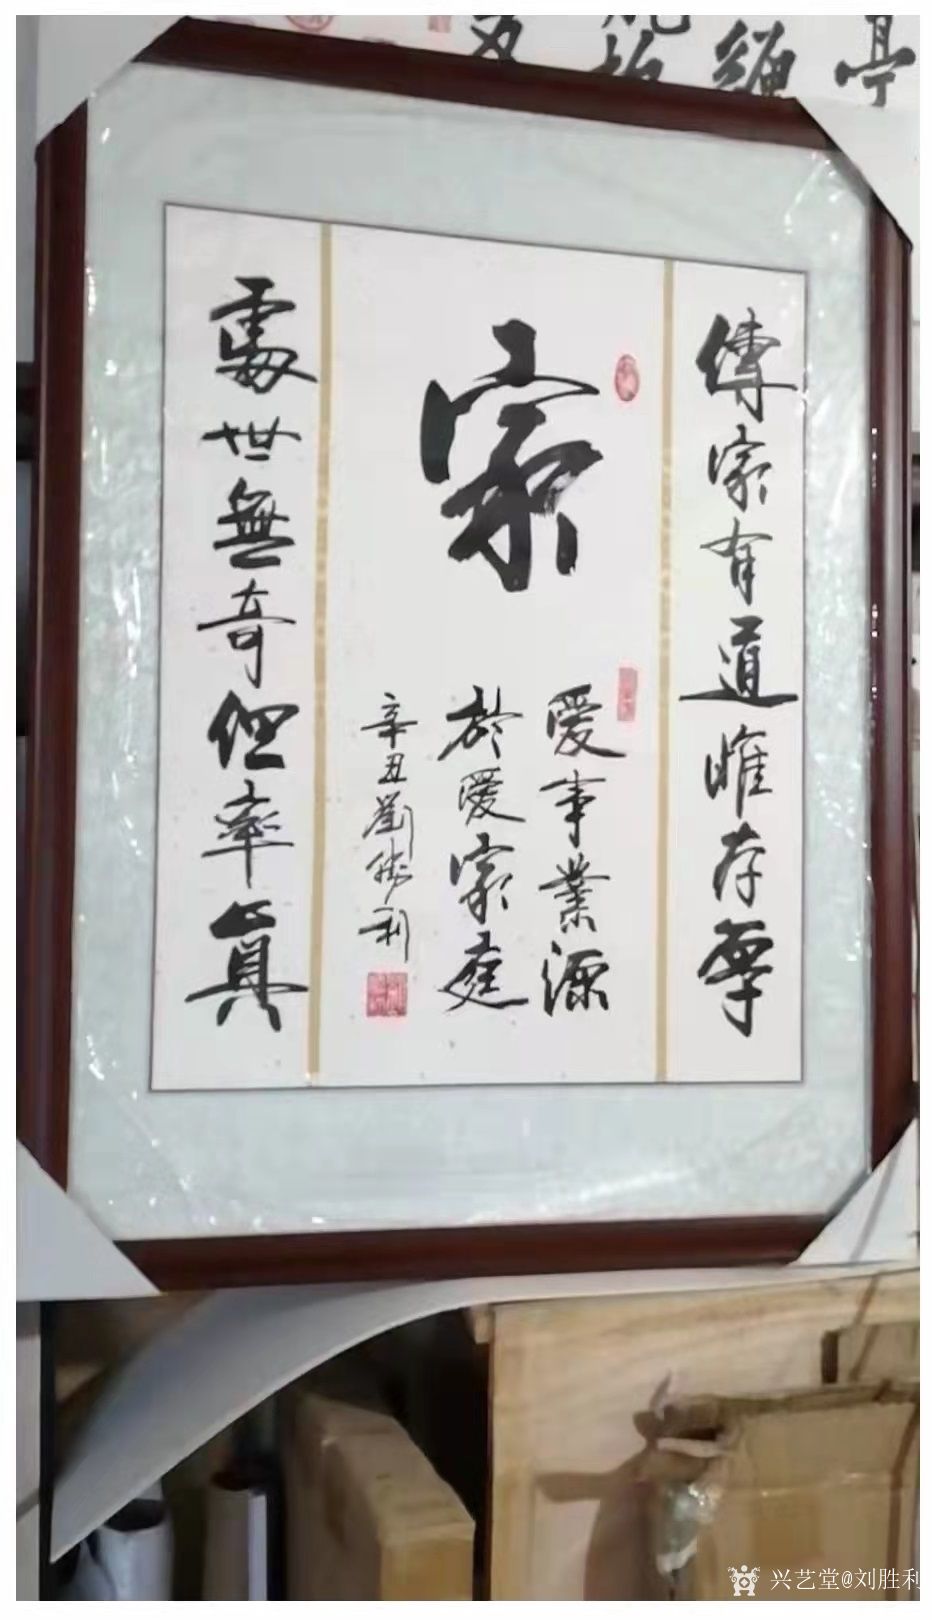 亭
傳家有道惟存厚
家
愛事業源
於愛家庭
辛丑劉勝利
處世無奇但率真
兴艺堂@刘胜利